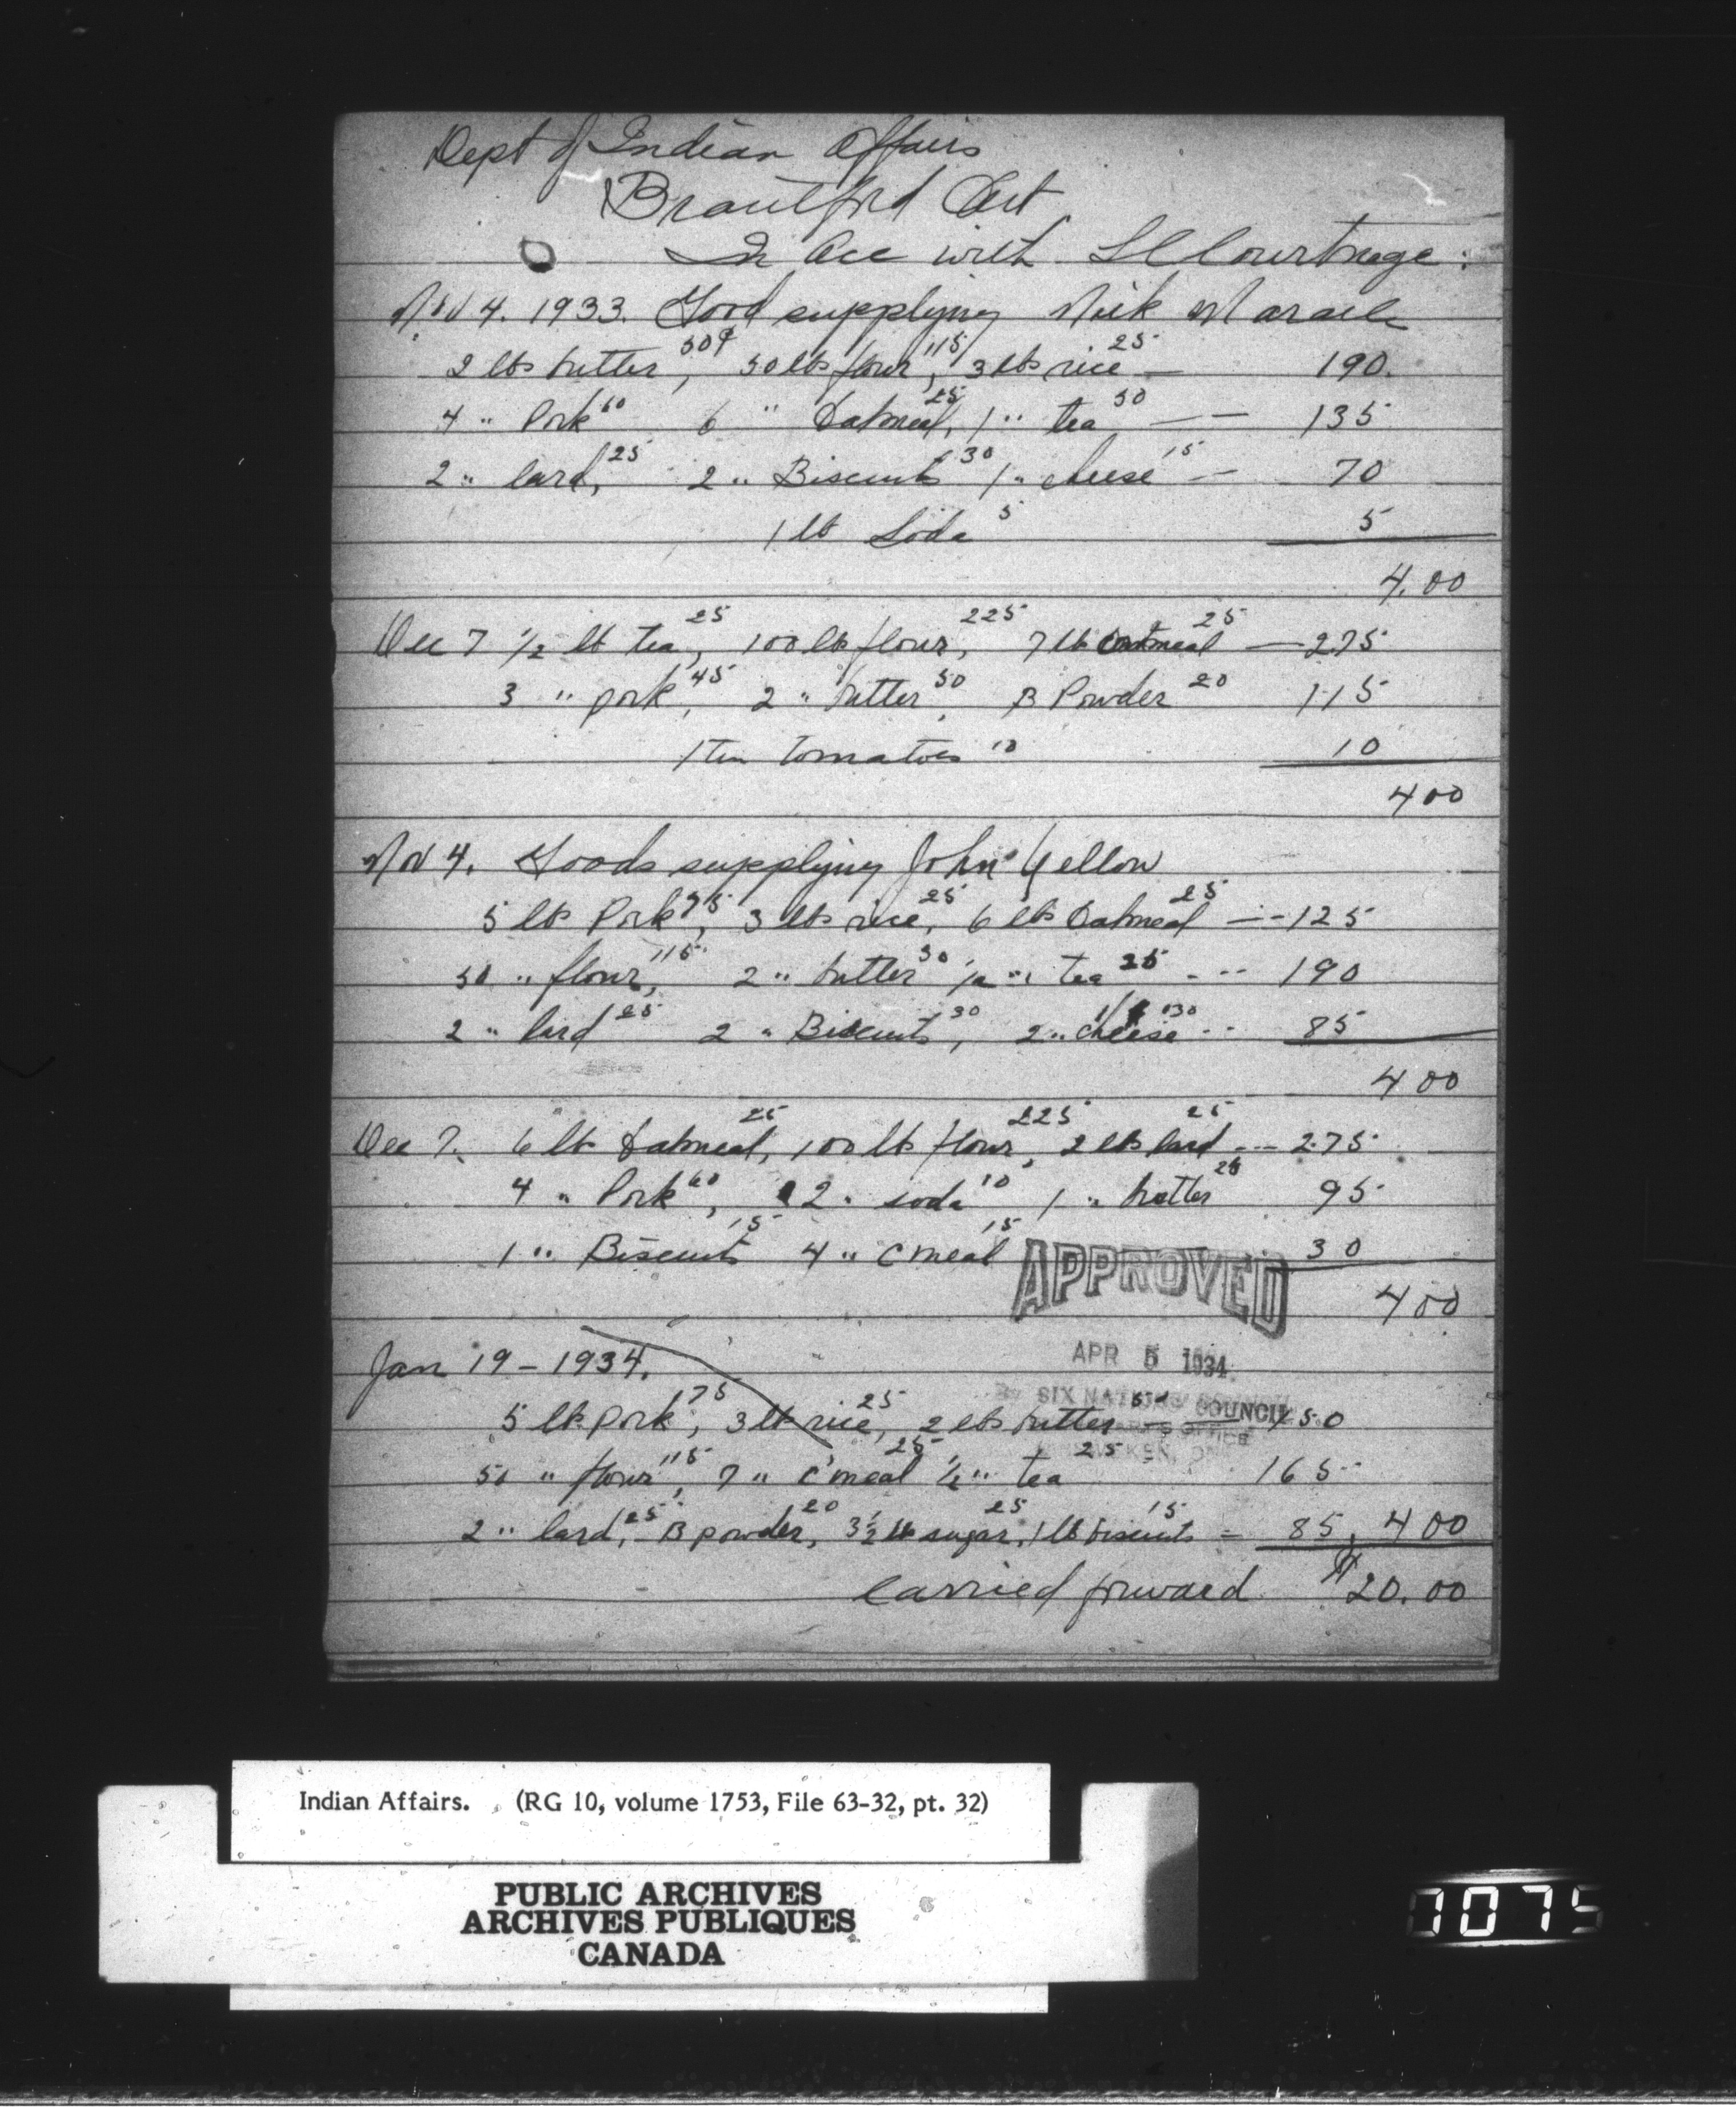 Dept of Indian Affairs
Brantford Ont
In Acc with
Nov 4. 1933. Good supplying Nick Maracle
2 lbs butter, 50¢ 50 lbs flour, 115 3 lbs rice 25 — 190.
4 " Pork 60 6 " Oatmeal, 25 1 " tea 50 — — 135
2 " lard, 25 2 " Biscuits 30 1 " cheese 15 — 70
1 lb Soda 5 5
4.00
Dec 7 ½ lb tea, 25 100 lbs flour, 225 7 lb oatmeal 25 — 275
3 " pork, 45 2 " butter, 50 B Powder 20 115
1 Tin tomatoes 10 10
400
Nov 4. Goods supplying John Yellow
5 lbs Pork, 75 3 lbs rice, 25 6 lbs Oatmeal 25 — 125
50 " flour, 115 2 " butter 50 ½ " tea 25 - -- 190
2 " lard 25 2 " Biscuits, 30 2 " cheese 30 -- 85
400
Dec 7. 6 lb Oatmeal, 25 100 lb flour, 225 2 lbs lard 25 --- 275
4 " Pork, 60 2 " soda 10 1 " butter 25 95
1 " Biscuits 15 4 " C meal 15 30
400
APPROVED
Jan 19 - 1934.
APR 5 1934
SIX NATIONS COUNCIL
5 lb pork, 75 3 lb rice, 25 2 lbs butter 50 — 150
50 " flour, 115 7 " C meal 25 ½ " tea 25 - 165
2 " lard, 25 B powder, 20 3½ lb sugar, 25 1 lb biscuits 15 = 85, 400
carried forward $20.00
Indian Affairs. (RG 10, volume 1753, File 63-32, pt. 32)
PUBLIC ARCHIVES
ARCHIVES PUBLIQUES
CANADA
7075